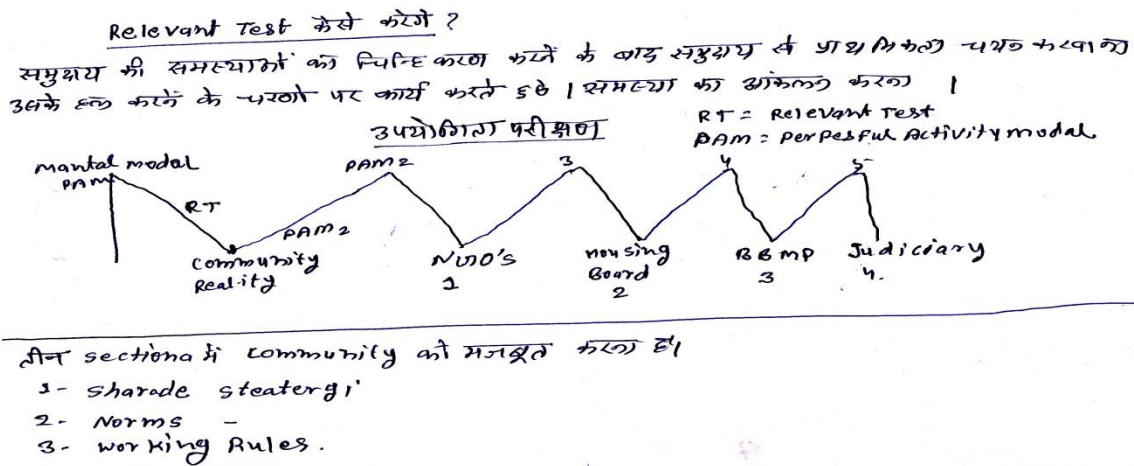 Relevant Test कैसे करेगे ?
समुदाय की समस्याओं को चिन्हिकरण करने के बाद समुदाय से प्राथमिकता चयन करवाना
उसके हल करने के चरणो पर कार्य करते हुवे । समस्या का आंकलन करना ।
उपयोगिता परीक्षण
RT = Relevant Test
PAM = Perpesful Activity modal
Mantal modal
PAM
PAM 2
3
4
5
RT
PAM 2
Community
Reality
NGO's
1
Housing
Board
2
BBMP
3
Judiciary
4.
तीन sectiona में Community को मजबूत करना है।
1- sharade steatergi
2- Norms -
3- working Rules.